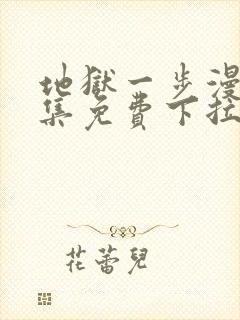 地獄一步漫
集免費下拉
花蕾兒